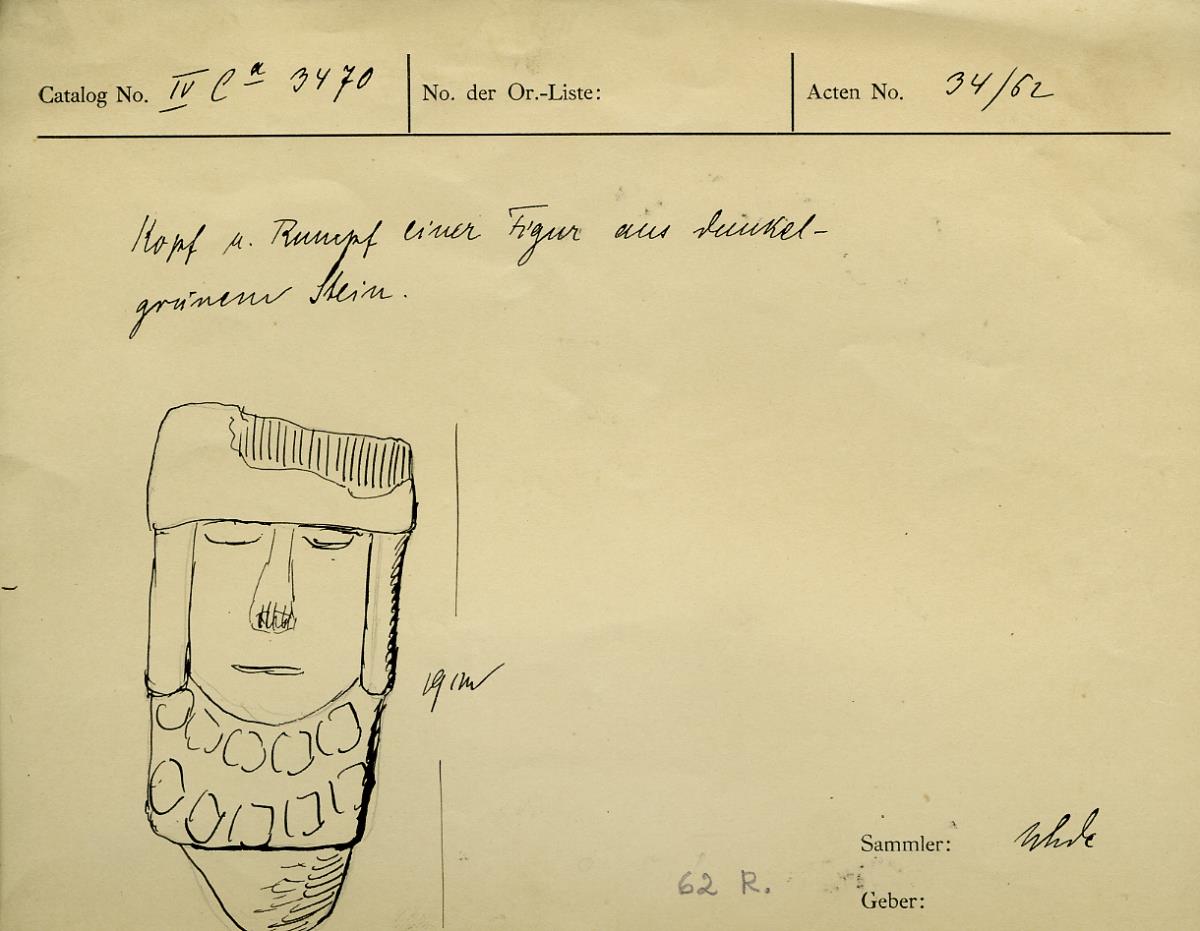 Catalog No. IV Ca 3470 No. der Or.-Liste: Acten No. 34/62
Kopf u. Rumpf einer Figur aus dunkel-
grünem Stein.
19 cm
Sammler: Uhde
62 R.
Geber: